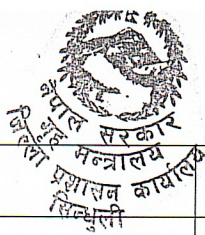 नेपाल सरकार
गृह मन्त्रालय
जिल्ला प्रशासन कार्यालय
सिन्धुली